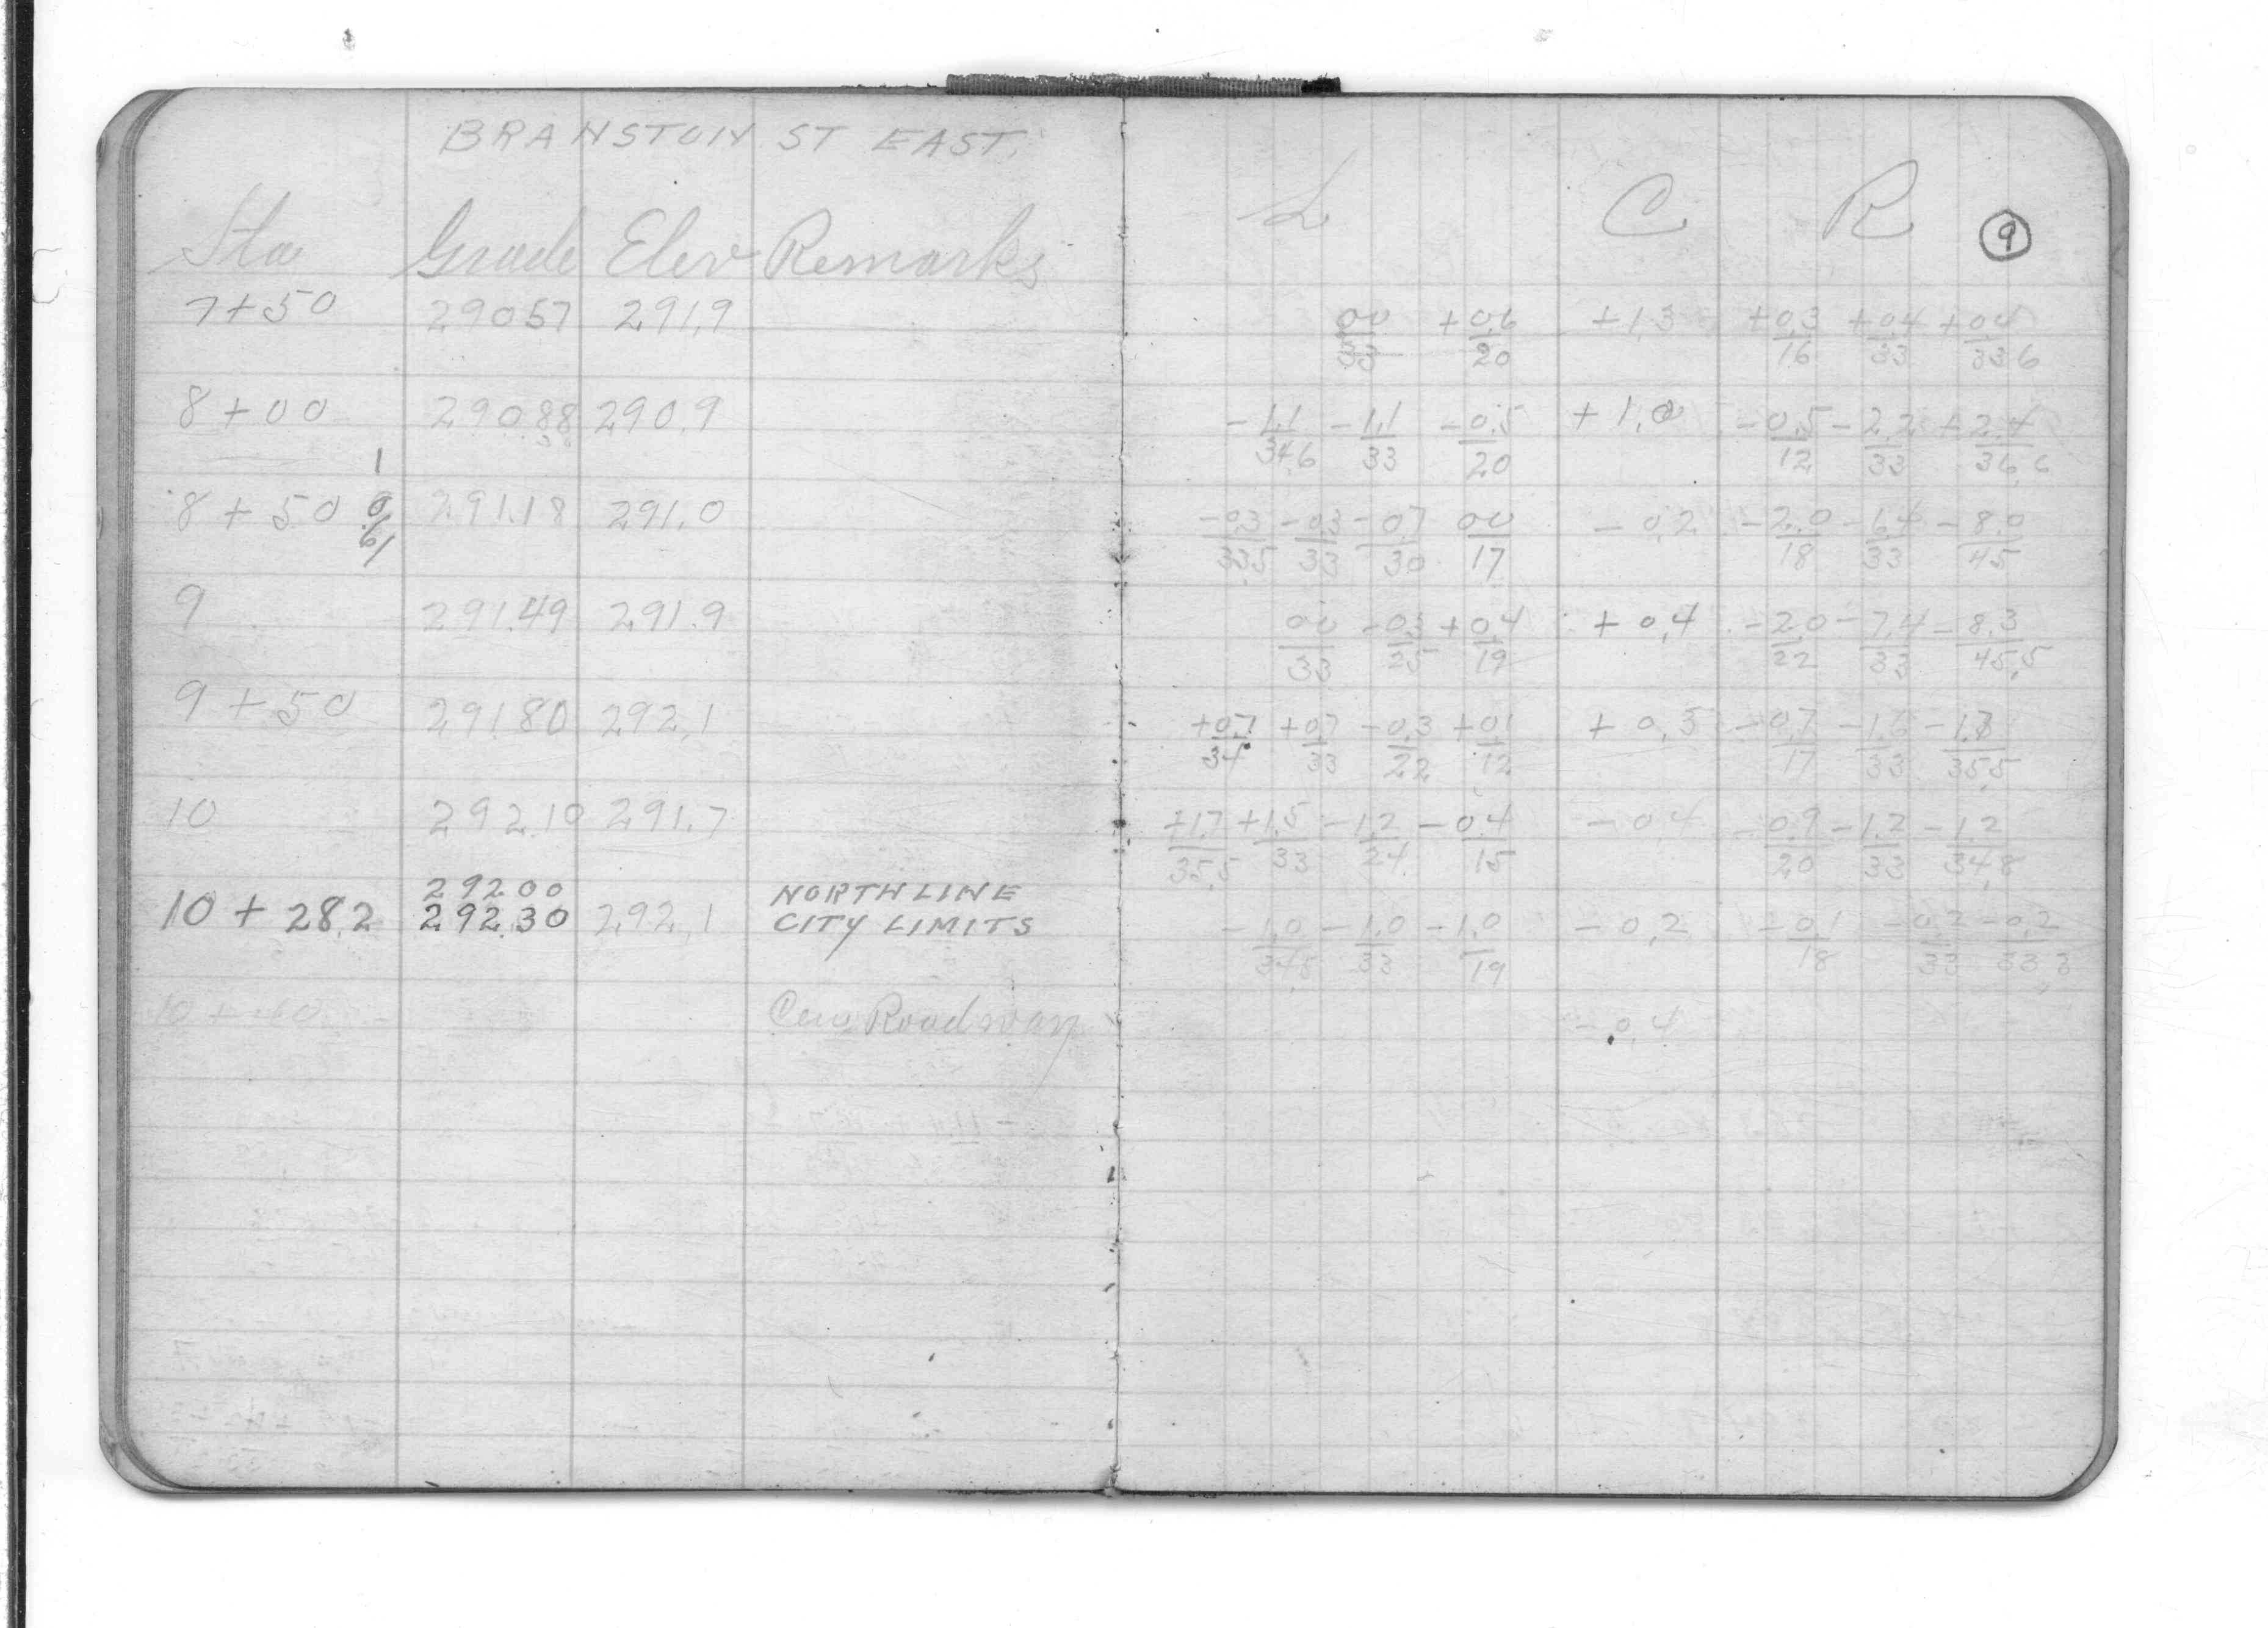 BRANSTON ST EAST.
L C R 9
Sta Grade Elev Remarks
7+50 290.57 291.9
0.0/33 +0.6/20 +1.3 +0.3/16 +0.4/33 +0.4/33.6
8+00 290.88 290.9
-1.1/34.6 -1.1/33 -0.5/20 +1.0 -0.5/12 -2.2/33 +2.4/36.6
8+50 291.18 291.0
-0.3/33.5 -0.3/33 -0.7/30 0.0/17 -0.2 -2.0/18 -6.4/33 -8.0/45
9 291.49 291.9
0.0/33 -0.3/25 +0.4/19 +0.4 -2.0/22 -7.4/33 -8.3/45.5
9+50 291.80 292.1
+0.7/34 +0.7/33 -0.3/22 +0.1/12 +0.5 -0.7/17 -1.6/33 -1.8/35.5
10 292.10 291.7
+1.7/35.5 +1.5/33 -1.2/24 -0.4/15 -0.4 -0.9/20 -1.2/33 -1.2/34.8
292.00 NORTH LINE
10+28.2 292.30 292.1 CITY LIMITS
-1.0/34.5 -1.0/33 -1.0/19 -0.2 -0.1/18 -0.2/33 -0.2/33.3
10+40 Roadway
-0.4